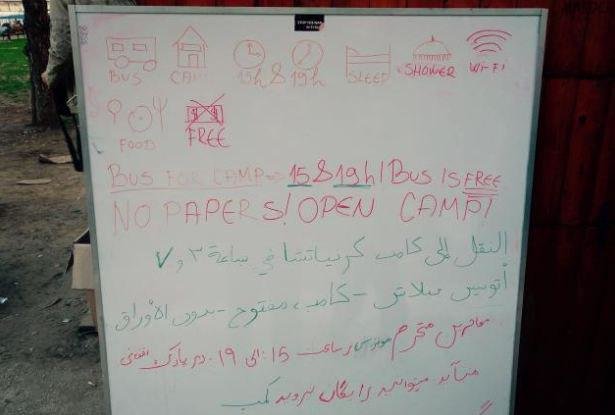 BUS CAMP 15h & 19h SLEEP SHOWER Wi-Fi
FOOD FREE
BUS FOR CAMP → 15 & 19h! BUS IS FREE
NO PAPERS! OPEN CAMP!
النقل إلى كامب كرنياتشا في ساعة ٣ و ٧
أتوبيس ببلاش - كامب مفتوح - بدون الأوراق
محترم ساعت 15 الی 19 در پارک افغانی
رایگان کمپ